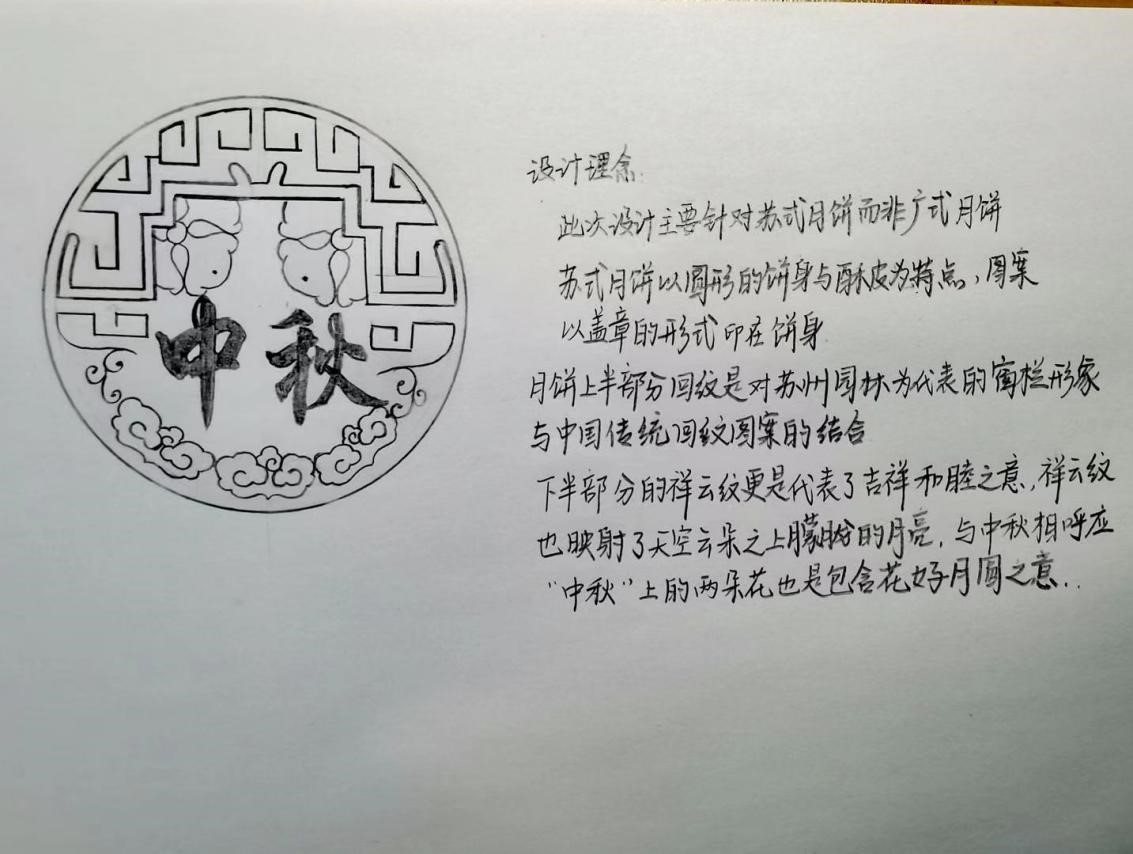 中秋
设计理念:
此次设计主要针对苏式月饼而非广式月饼
苏式月饼以圆形的饼身与酥皮为特点,图案
以盖章的形式印在饼身
月饼上半部分回纹是对苏州园林为代表的窗栏形象
与中国传统回纹图案的结合
下半部分的祥云纹更是代表了吉祥和睦之意,祥云纹
也映射了天空云朵之上朦胧的月亮,与中秋相呼应
"中秋"上的两朵花也是包含花好月圆之意..